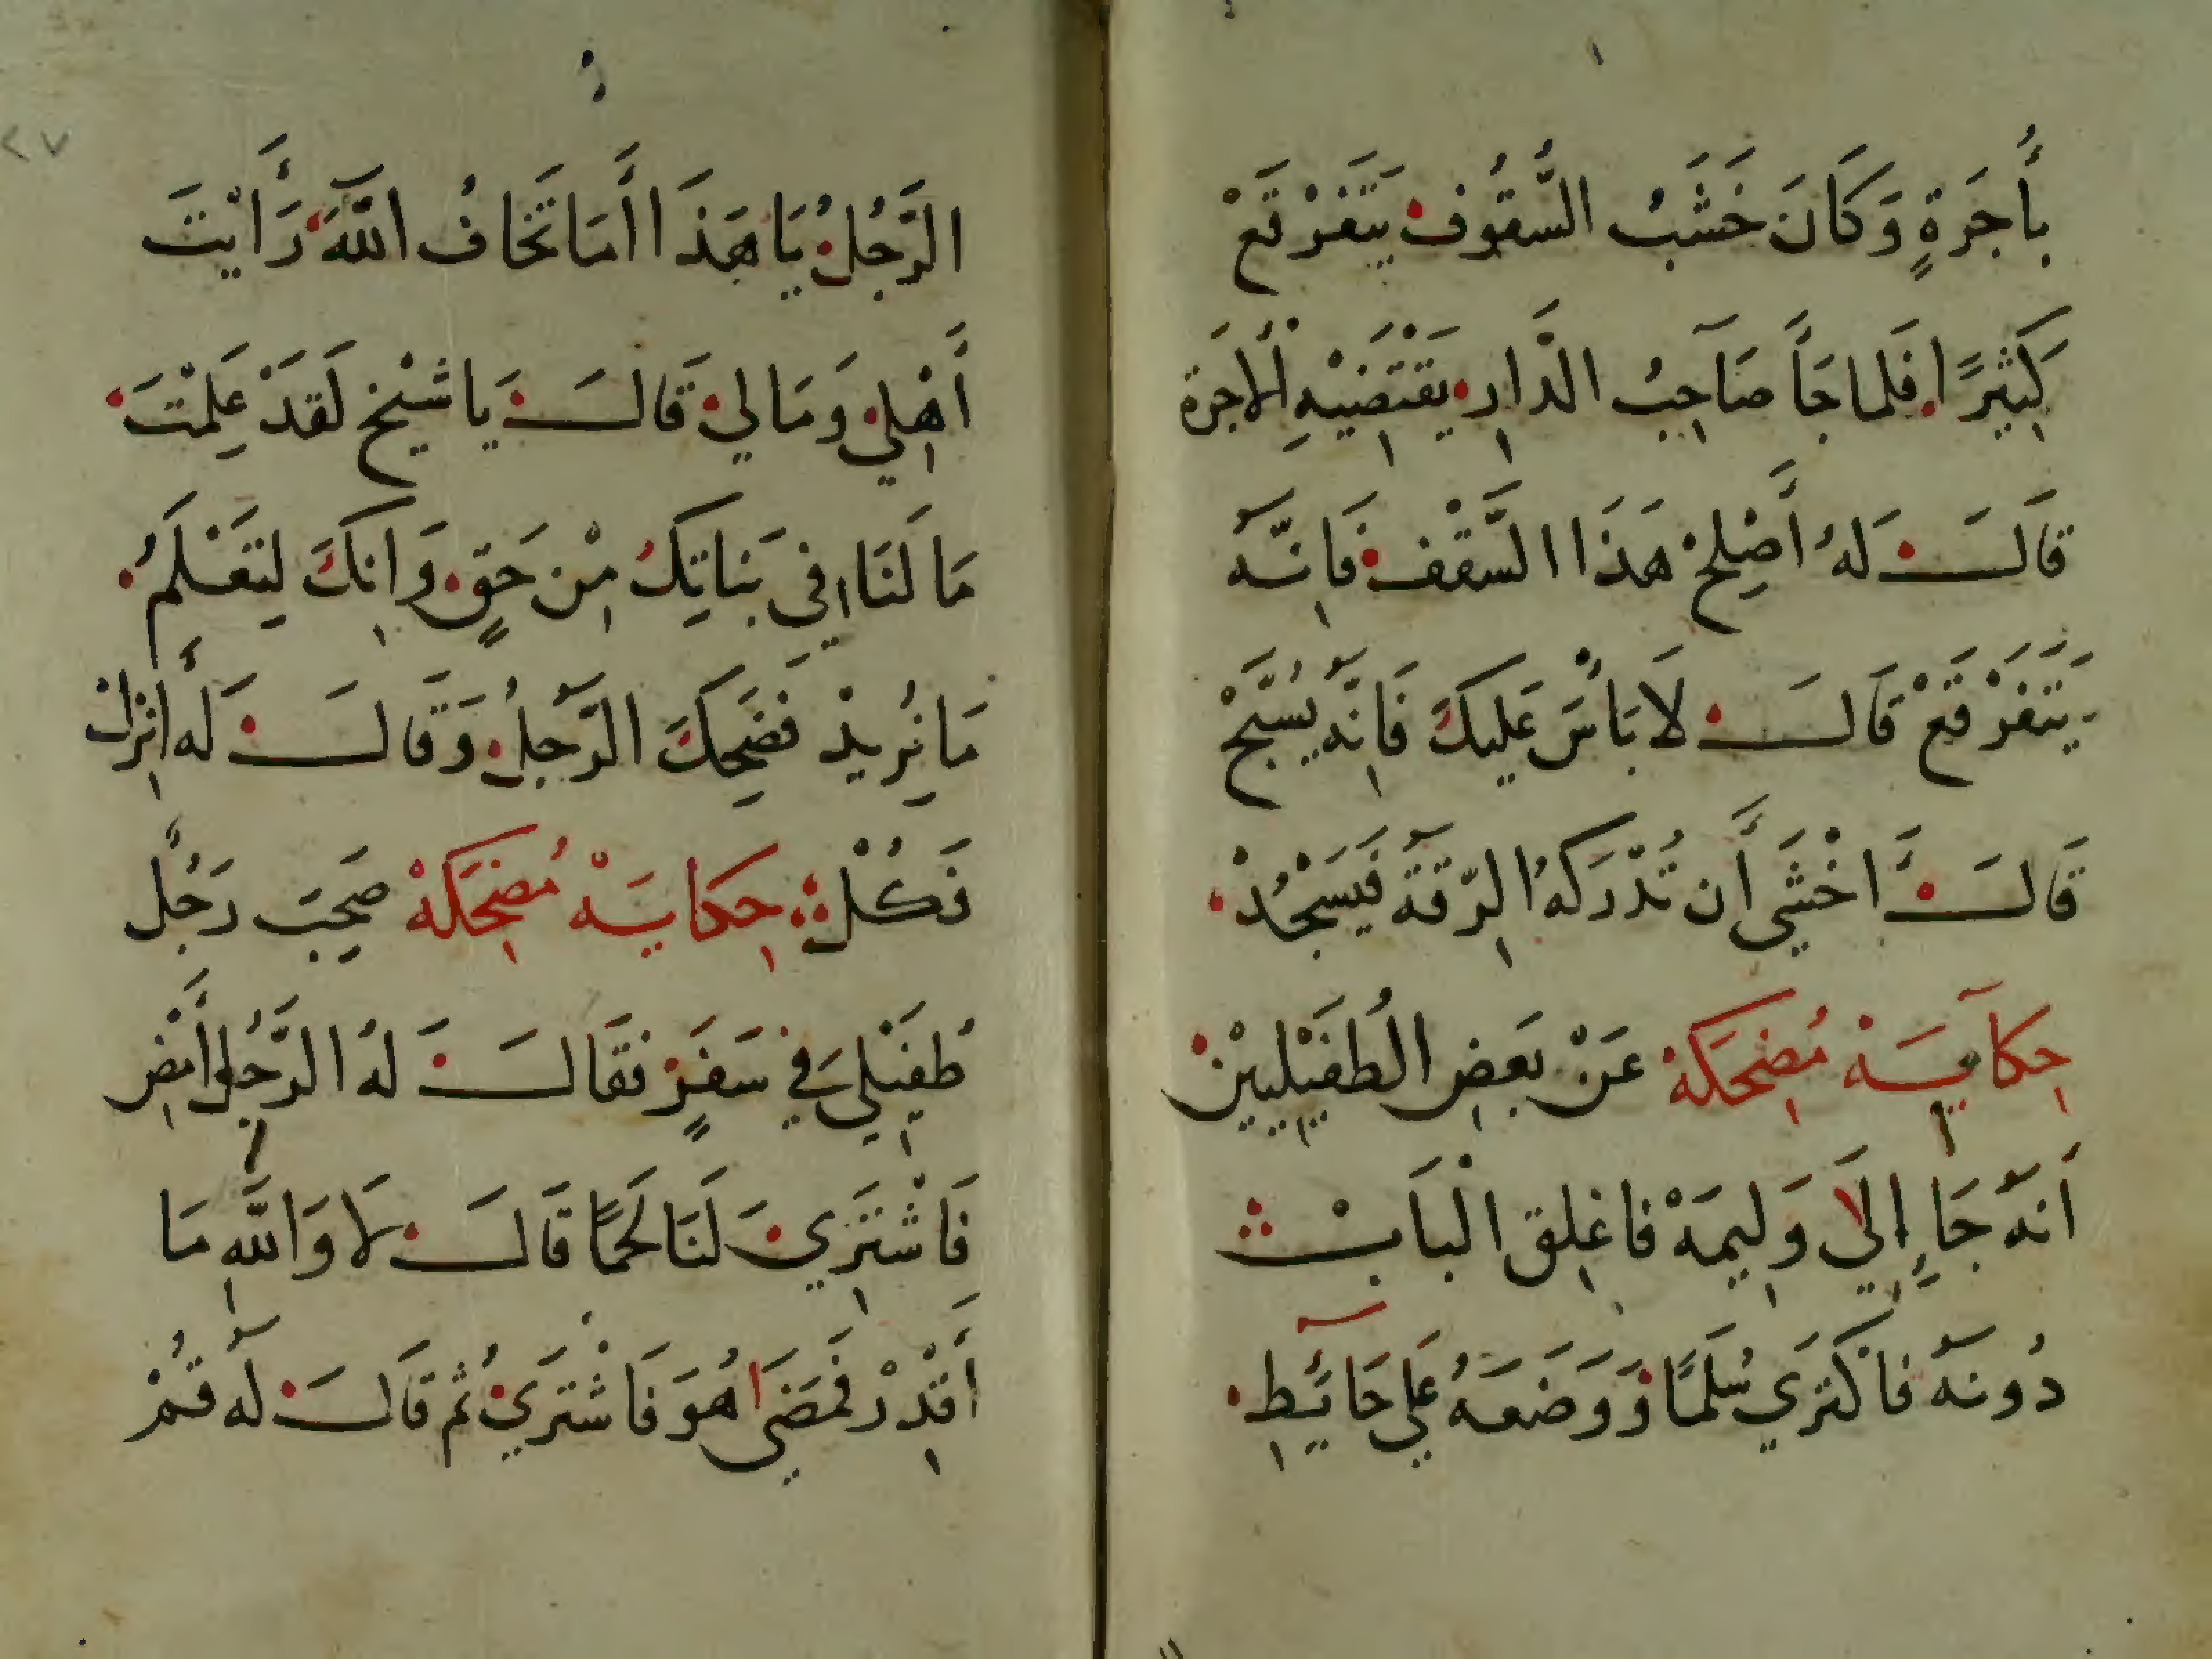 بأُجرَةٍ وَكَانَ خَشَبُ السُّقُوف يَتَفَرْقَعْ
كَثِيرًا فَلما جَأَ صَاحِبُ الدَّارِ يَقْتَضِيْهِ الأُجرَة
قَالَ لهُ أَصْلِحْ هَذَا السَّقْفْ فَاِنَّهُ
يَتَفَرْقَعْ قَالَ لَا بَأْسَ عَليكَ فَاِنَّهُ يُسَبِّحْ
قَالَ أَخْشَي أَن تُدْرِكَهُ الرِّقَةُ فَيَسْجُدْ
حِكَايَهْ مُضحِكَهْ عَنْ بَعَضِ الطُفَيْلِيينْ
أنَهُ جَاءِ إِلَي وَلِيمَهْ فاغلِق الْبَابْ
دُونَهُ فَاكْتَرَي سُلَّمًا وَوَضَعَهُ عَلَي حَائِطِ
الرَّجُلُ يَا هَذَا أَمَا تَخَافُ اللَّهَ رَأَيْتَ
أَهْلِي وَمَالِي قَالَ يَا شَيْخ لَقَدْ عَلِمْتَ
مَا لَنَا فِي بَنَاتِكَ مِنْ حَقٍّ وَاِنكَ لِتَعْلَمُ
مَا نُرِيدْ فَضَحِكَ الرَّجلُ وَقَالَ لَهُ أَنزِلْ
فَكُلْ حِكَايَهْ مُضحِكَهْ صَحِبَ رَجُلٌ
طُفَيْلِي فِي سَفَرٍ فَقَالَ لهُ الرَّجُلُ أَمْضِ
فَاشْتَرِي لَنَا لَحمًا قَالَ لَا وَاللَّهِ مَا
أَقْدِرْ فَمَضَي هُوَ فَاشْتَرَي ثُم قَالَ لَهُ قُمْ
٢٧